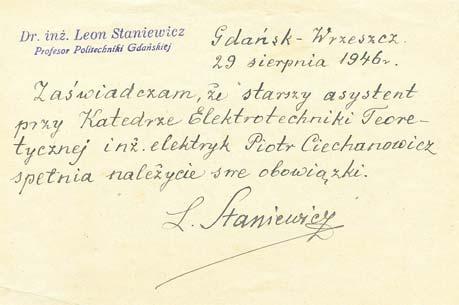 Dr. inż. Leon Staniewicz
Profesor Politechniki Gdańskiej
Gdańsk - Wrzeszcz.
29 sierpnia 1946r.
Zaświadczam, że starszy asystent
przy Katedrze Elektrotechniki Teore-
tycznej inż. elektryk Piotr Ciechanowicz
spełnia należycie swe obowiązki.
L. Staniewicz